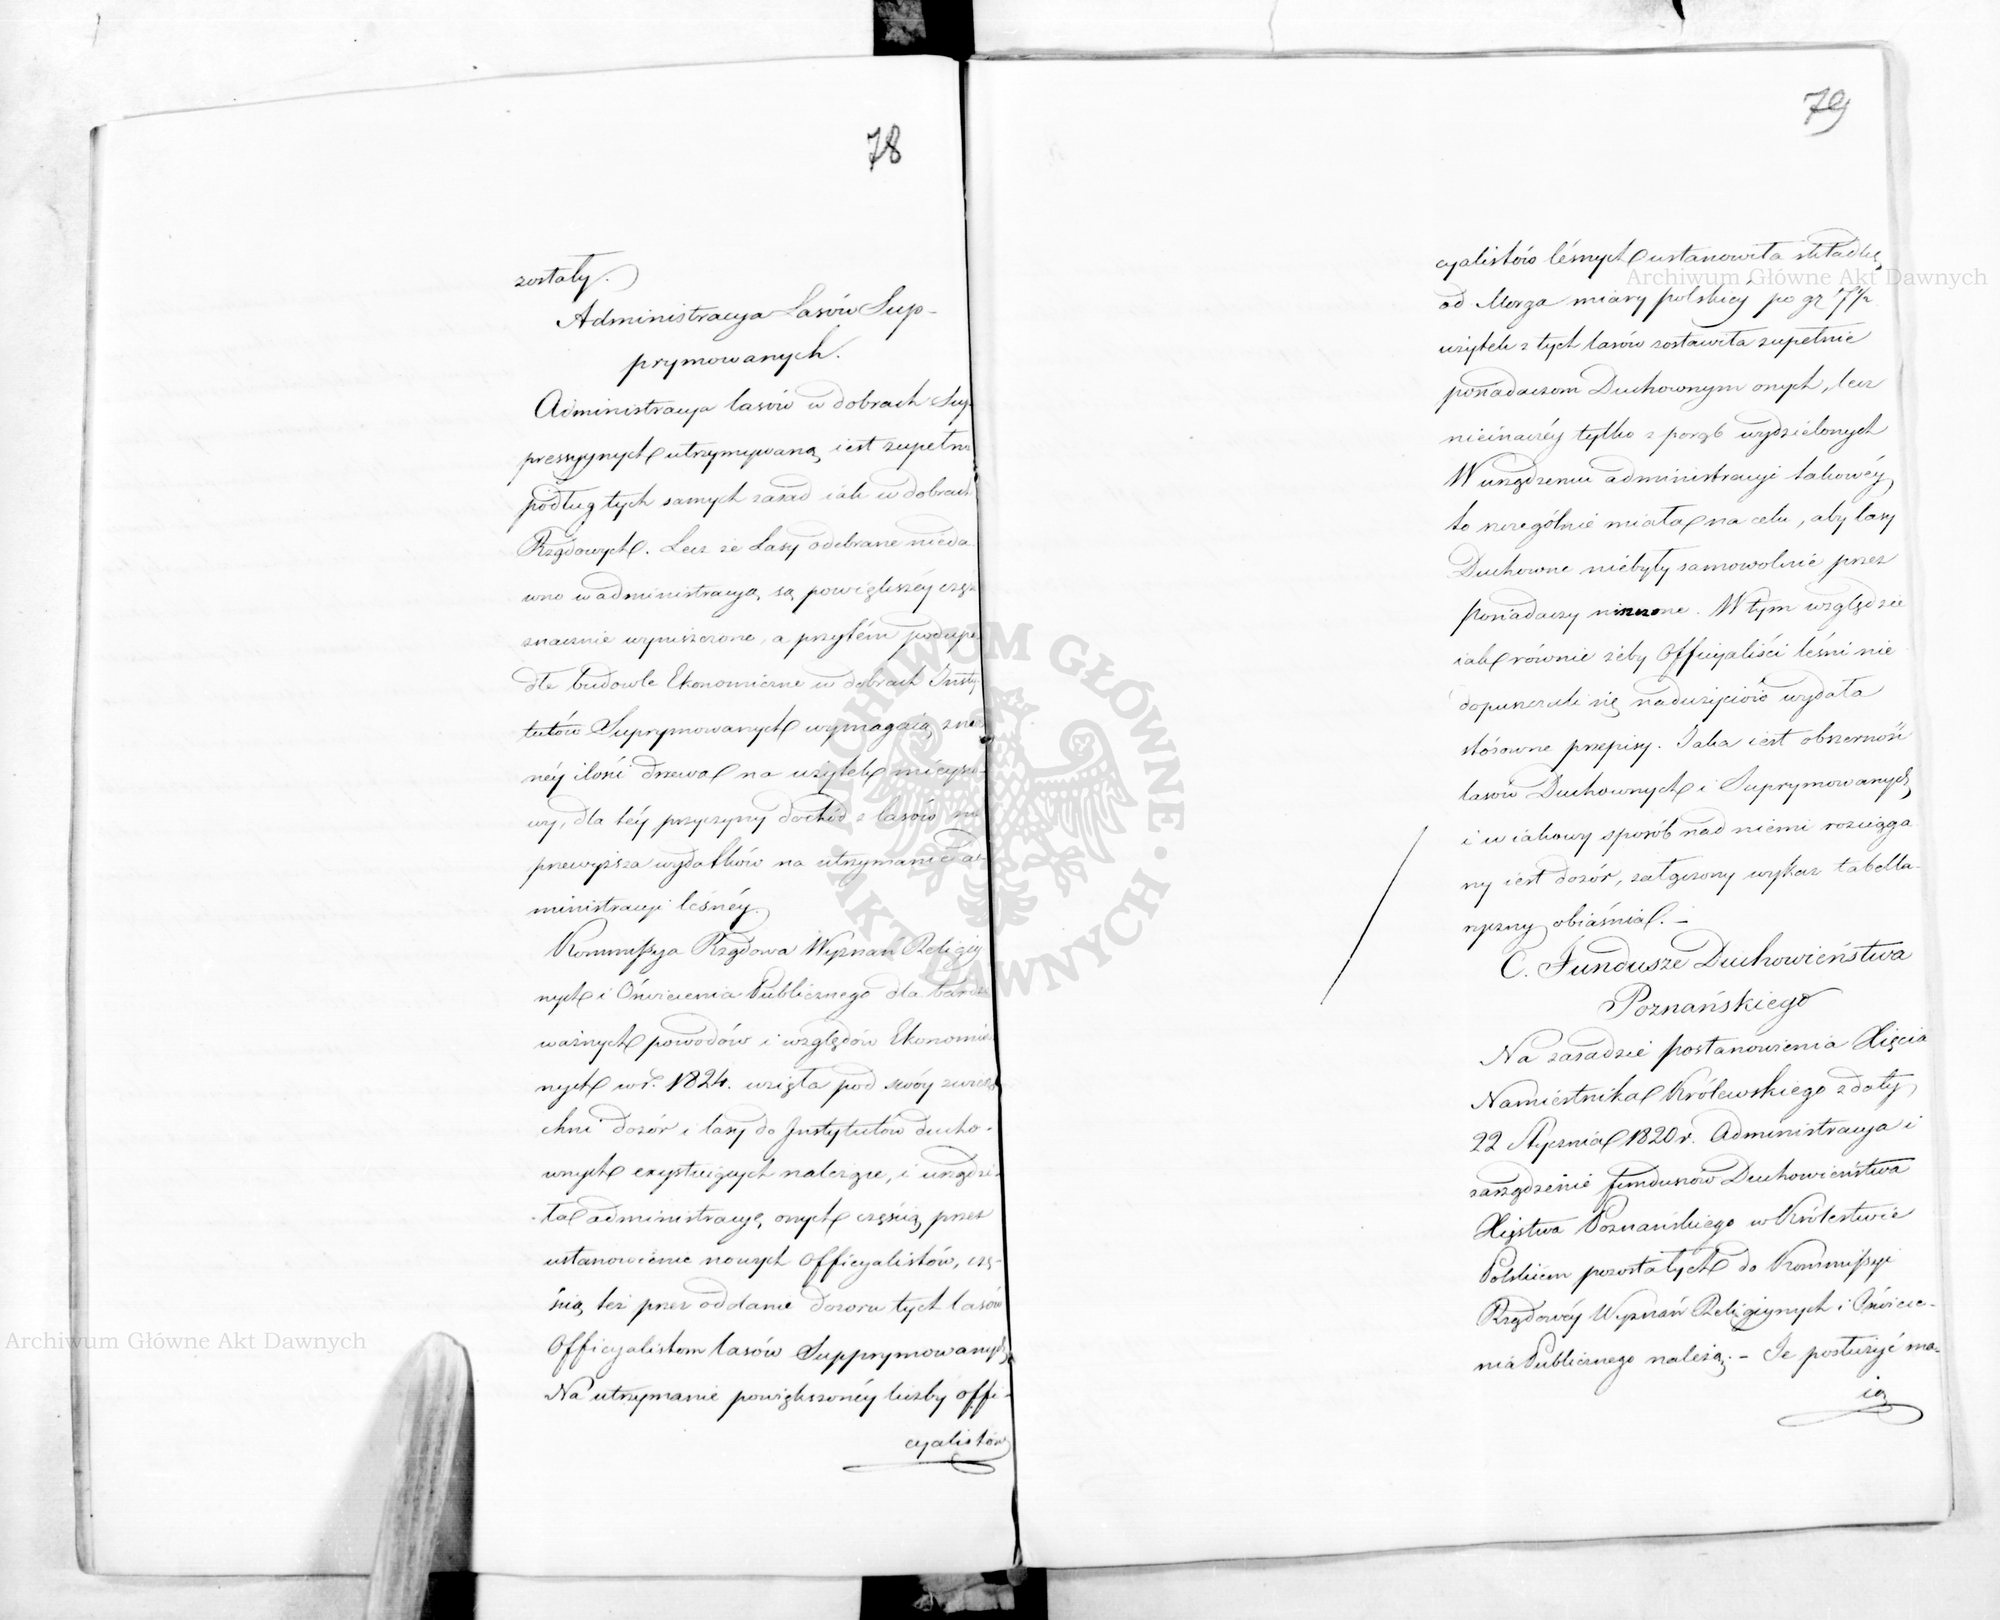 78
zostały.
Administracya Lasów Sup-
prymowanych.
Administracya lasów w dobrach Sup
pressyynych utrzymywaną iest zupełnie
podług tych samych zasad iak w dobrach
Rządowych. Lecz że Lasy odebrane nieda
wno w administracyą, są powiększéy częś
znacznie wyniszczone, a przytém podupa
dłe budowle Ekonomiczne w dobrach Insty
tutów Suprymowanych wymagaią znacz
néy ilości drzewa na użytek mieysco-
wy, dla téy przyczyny dochód z lasów nie
przewyższa wydatków na utrzymanie ad
ministracyi leśnéy.
Kommissya Rządowa Wyznań Religiy
nych i Oświecenia Publicznego dla bardzo
ważnych powodów i względów Ekonomicz
nych w r. 1824. wzięła pod swóy zwierz
chni dozór i lasy do Instytutów ducho-
wnych exystuiących należące, i urządzi-
ła administracyę onych częścią przez
ustanowienie nowych Officyalistów, czę-
ścią też przez oddanie dozoru tych lasów
Officyalistom lasów Supprymowanych
Na utrzymanie powiększonéy liczby offi-
cyalistów
79
cyalistów leśnych ustanowiła składkę
od Morga miary polskiéy po gr 7 1/2
użytek z tych lasów zostawiła zupełnie
posiadaczom Duchownym onych, lecz
nieinaczéy tylko z porąb wydzielonych
W urządzeniu administracyi takowéy
to szczególnie miała na celu, aby lasy
Duchowne niebyły samowolnie przez
posiadaczy niszczone. W tym względzie
iak równie żeby Officyaliści leśni nie
dopuszczali się nadużyciów wydała
stósowne przepisy. Jaka iest obszerność
lasów Duchownych i Suprymowanych
i w iakowy sposób nad niemi rozciąga
ny iest dozór, załączony wykaz tabella-
ryczny obiaśnia. –
C. Fundusze Duchowieństwa
Poznańskiego
Na zasadzie postanowienia Xięcia
Namiestnika Królewskiego z daty
22 Stycznia 1820 r. Administracya i
zarządzenie funduszów Duchowieństwa
Xięstwa Poznańskiego w Królestwie
Polskiem pozostałych do Kommissyi
Rządowéy Wyznań Religiynych i Oświece-
nia Publicznego należą. – Te posłużyć ma-
ią
Archiwum Główne Akt Dawnych
Archiwum Główne Akt Dawnych
ARCHIWUM GŁÓWNE · AKT DAWNYCH ·